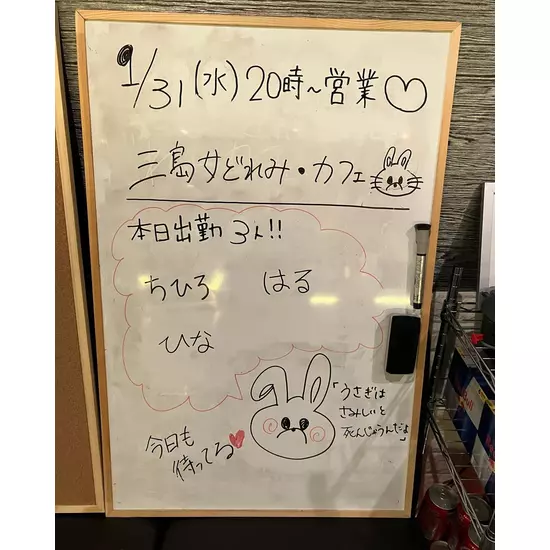 1/31(水)20時~営業♡
三島女どれみ・カフェ
本日出勤3人!!
ちひろ はる
ひな
「うさぎは
さみしいと
死んじゃうんだよ」
今日も
待ってる♥